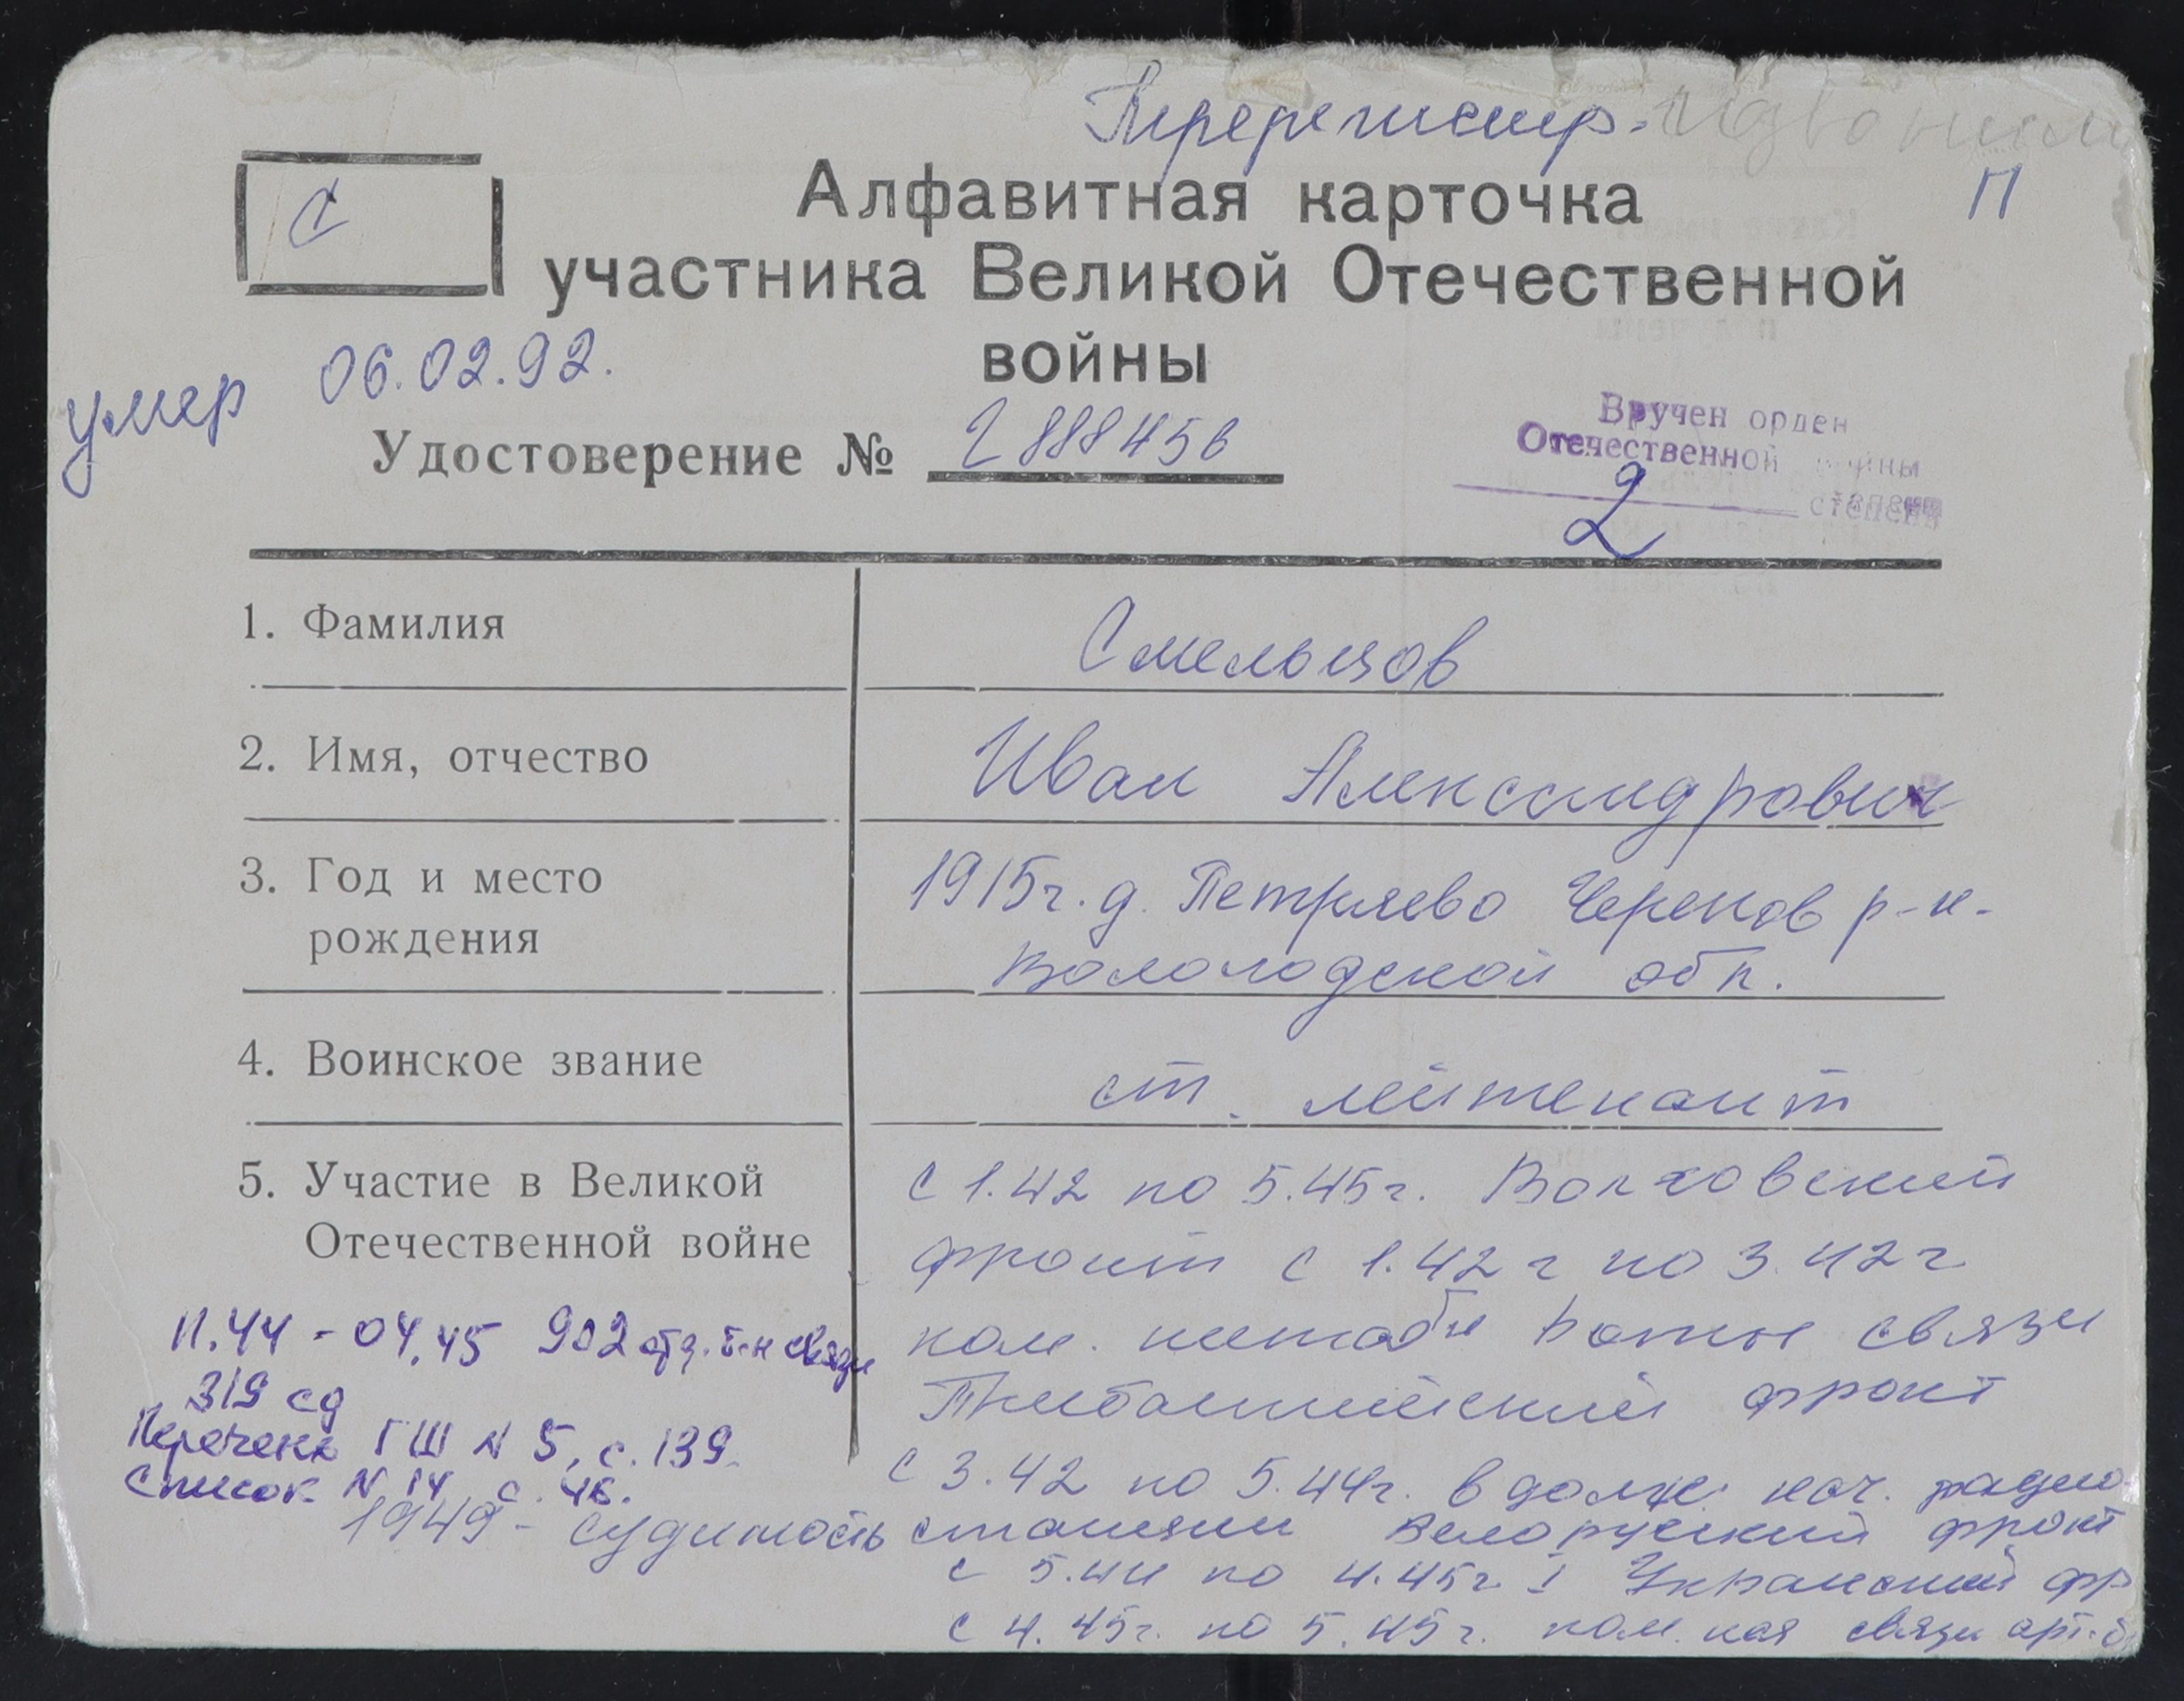 Перерегистр.
С
П
Алфавитная карточка
участника Великой Отечественной
войны
умер 06.02.92.
Удостоверение № 2888456
Вручен орден
Отечественной войны
2 степени
1. Фамилия Смельцов
2. Имя, отчество Иван Александрович
3. Год и место
рождения
1915г. д. Петряево Череков р-н-
Вологодской обл.
4. Воинское звание ст. лейтенант
5. Участие в Великой
Отечественной войне
с 1.42 по 5.45г. Волховский
фронт с 1.42 г по 3.42 г
ком. роты связи
Прибалтийский фронт
с 3.42 по 5.44г. в долж. нач. радио-
станции Белорусский фронт
с 5.44 по 4.45г. I Украинский фр
с 4.45г. по 5.45г. ком. связи арт.
11.44 - 04.45 902 отд. б-н связи
319 сд
Перечень ГШ N 5, с. 139.
Список N 14 с. 46.
1949 - судимость